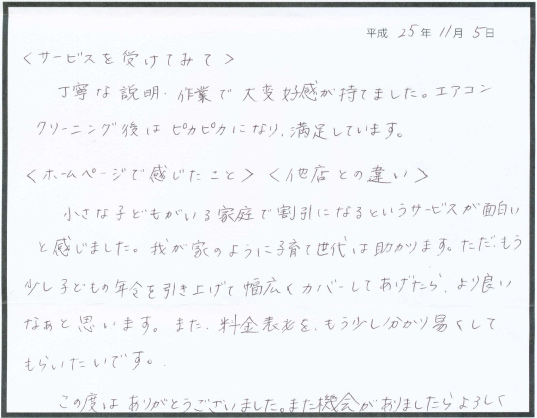 平成 25年 11月 5日
＜サービスを受けてみて＞
丁寧な説明・作業で大変好感が持てました。エアコン
クリーニング後はピカピカになり、満足しています。
＜ホームページで感じたこと＞ ＜他店との違い＞
小さな子どもがいる家庭で割引になるというサービスが面白い
と感じました。我が家のように子育て世代は助かります。ただ、もう
少し子どもの年令を引き上げて幅広くカバーしてあげたら、より良い
なぁと思います。また、料金表を、もう少し分かり易くして
もらいたいです。
この度はありがとうございました。また機会がありましたらよろしく